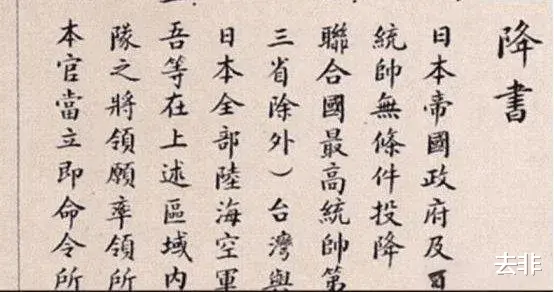 降書
日本帝國政府及
統帥無條件投降
聯合國最高統帥第
三省除外）台灣與
日本全部陸海空軍
吾等在上述區域内
隊之將領願率領所
本官當立即命令所
去非